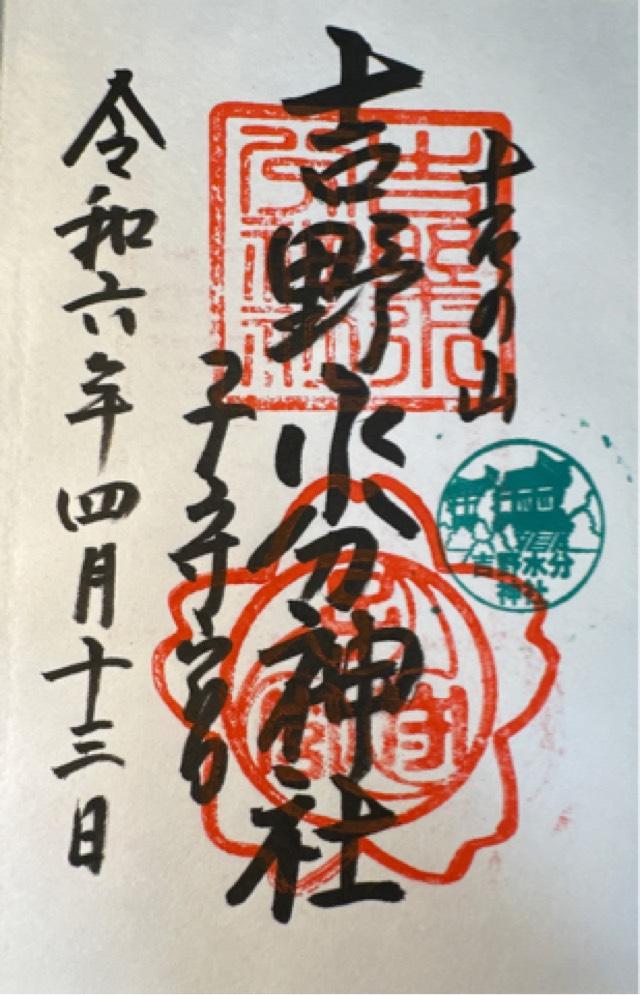 吉の山
吉野水分神社
子守宮
令和六年四月十三日
吉野水分
神社